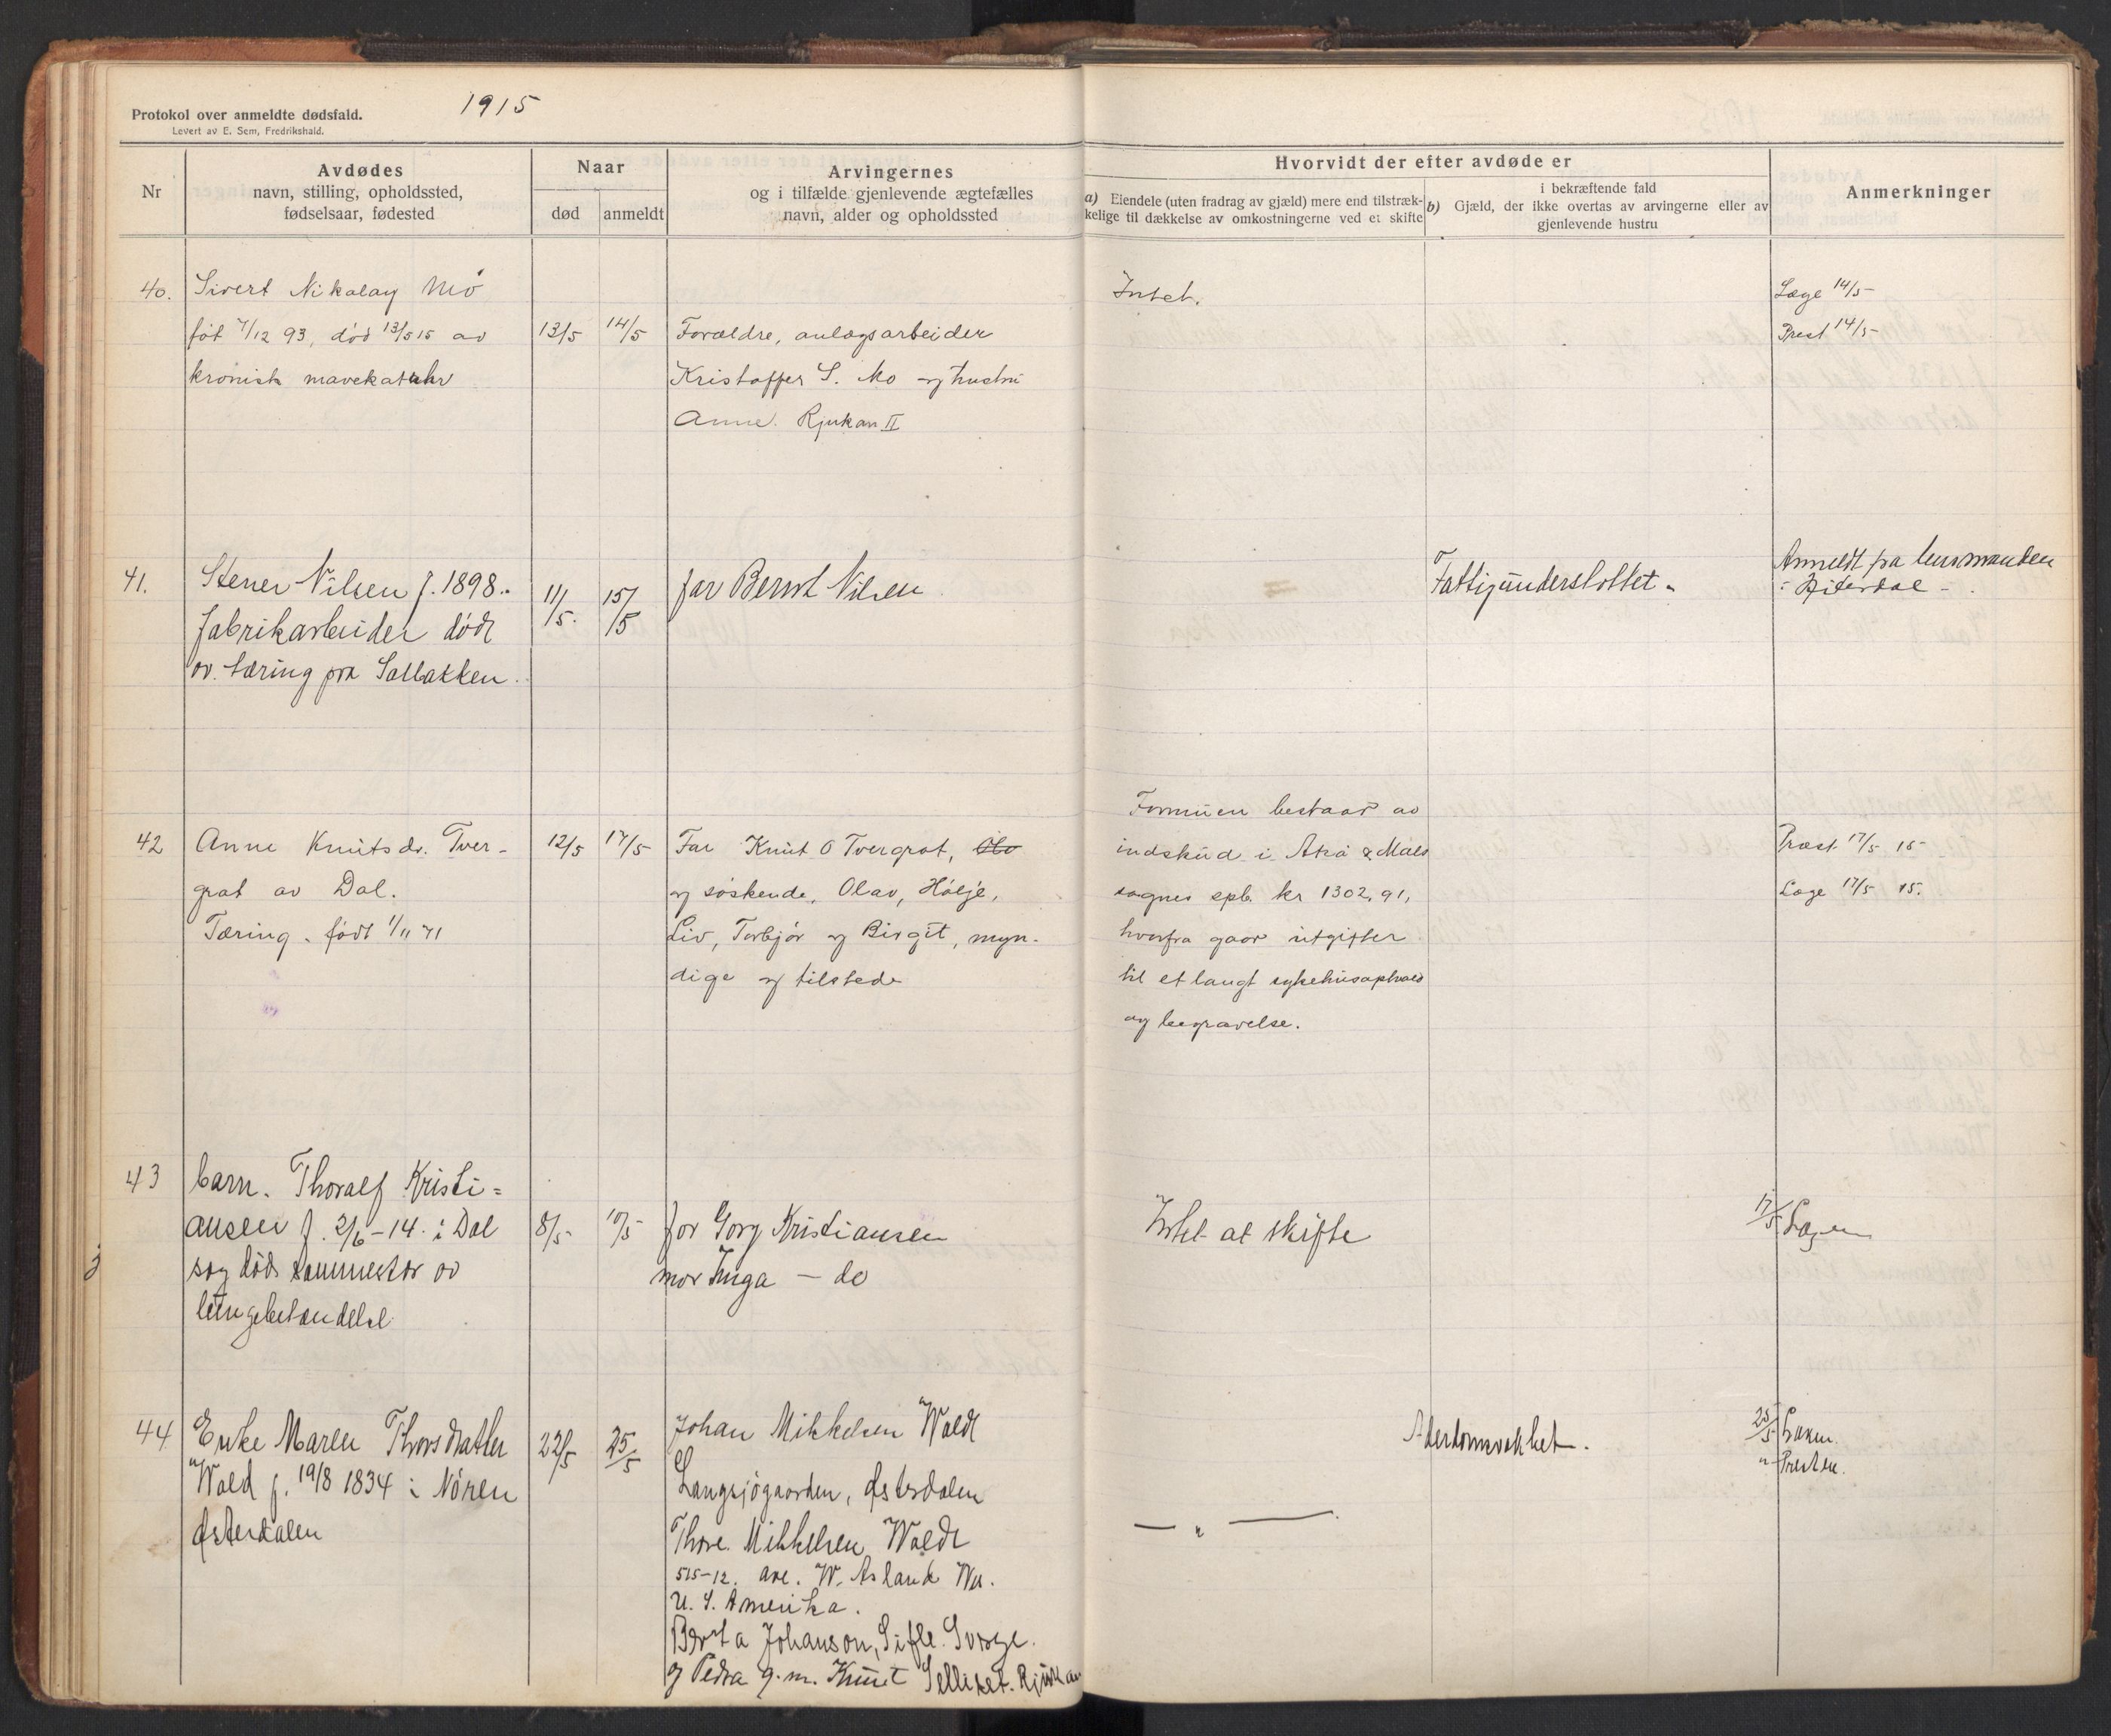 1915
Protokol over anmeldte dødsfald.
Levert av E. Sem, Fredrikshald.
Nr
Avdødes
navn, stilling, opholdssted,
fødselsaar, fødested
Naar
død
anmeldt
Arvingernes
og i tilfælde gjenlevende ægtefælles
navn, alder og opholdssted
Hvorvidt der efter avdøde er
a) Eiendele (uten fradrag av gjæld) mere end tilstræk-
kelige til dækkelse av omkostningerne ved et skifte
i bekræftende fald
b) Gjæld, der ikke overtas av arvingerne eller av
gjenlevende hustru
Anmerkninger
40.
Sivert Nikolay Mo
føt 7/12 93, død 13/5 15 av
kronisk mavekatahr
13/5
14/5
Forældre, anlægsarbeider
Kristoffer S. Mo og hustru
Anne. Rjukan II
Intet.
Læge 14/5
Prest 14/5
41.
Stener Nilsen f. 1898.
fabrikarbeider døde
av tæring fra Salbakken.
11/5.
15/5
far Bernt Nilsen
Fattigunderstøttet.
Anmeldt fra lensmanden
i Hiterdal.
42
Anne Knutsdr. Tver-
grot av Dal.
Tæring. født 1/11 71
12/5
17/5
Far Knut O Tvergrot, Olv
og søskende, Olav, Hølje,
Liv, Torbjør og Birgit, myn-
dige og tilstede
Formuen bestaar av
indskud i Atrå & Mæls
sognes spb. kr 1302,91,
hvorfra gaar utgifter
til et langt sykehusophold
og begravelse.
Præst 17/5 15
Læge 17/5 15.
43
barn. Thoralf Kristi=
ansen f. 2/6-14. i Dal
sog døde sammestar av
lungebetændelse
8/5
10/5
far Gorg Kristiansen
mor Inga — do
Intet at skifte
17/5 Lægen
44
Enke Maren Thorsdatter
Wold f. 19/8 1834 i Nören
Østerdalen
22/5
25/5
Johan Mikkelsen Wold
Langsjøgaarden, Østerdalen
Thore Mikkelsen Wold
515-12. ave. W. Asland Wis.
U. S. Amerika.
Berta Johanson, Sifle. Sverge.
og Pedra g. m. Knut Selliset. Rjukan
— " —
Alerdomsvakhet.
25/5 Lægen
" Presten.